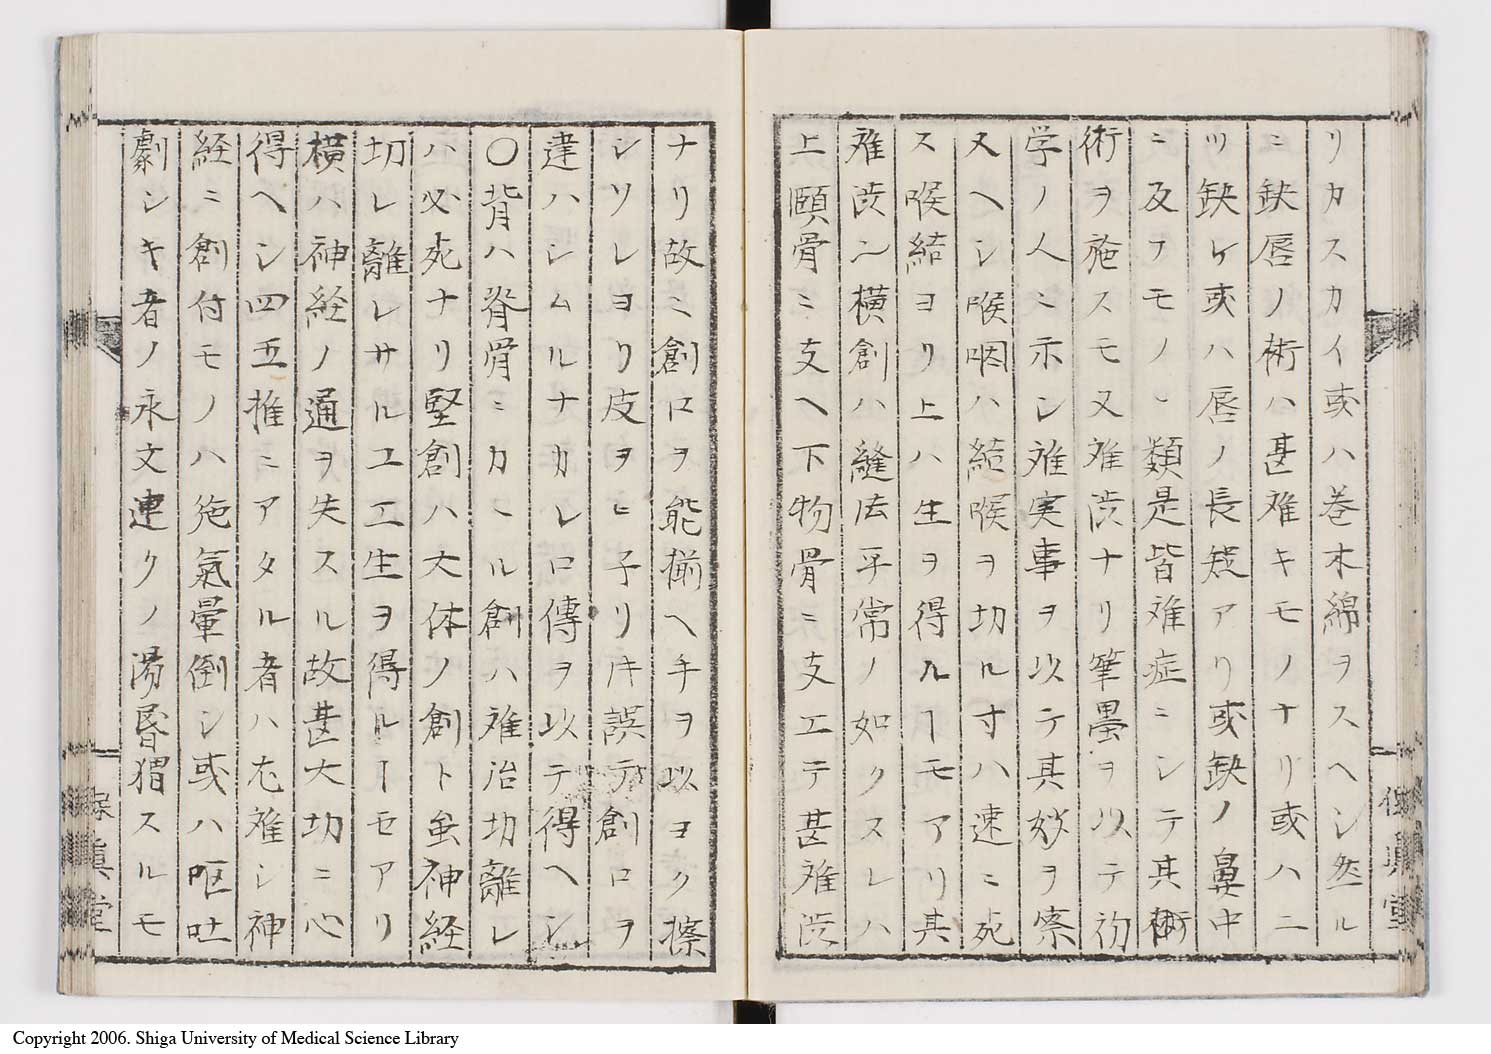 リカスカイ或ハ巻木綿ヲスヘシ然ル
ニ缺唇ノ術ハ甚难キモノナリ或ハ二
ツ缺ケ或ハ唇ノ長短アリ或缺ノ鼻中
ニ及フモノヽ類是皆难症ニシテ其術
術ヲ施スモ又难渋ナリ筆墨ヲ以テ初
学ノ人ニ示シ难実事ヲ以テ其妙ヲ察
又ヘシ喉咽ハ結喉ヲ切ル寸ハ速ニ死
ス喉結ヨリ上ハ生ヲ得ルヿモアリ其
难渋シ横創ハ縫法平常ノ如クスレハ
上頤骨ニ支ヘ下物骨ニ支エテ甚难渋
ナリ故ニ創口ヲ能揃ヘ手ヲ以ヲク擦
シソレヨリ皮ヲヒ子リ𪜈誤テ創口ヲ
違ハシムルナカレ口傳ヲ以テ得ヘシ
〇背ハ脊骨ニカヽル創ハ难治切離レ
ハ必死ナリ堅創ハ大体ノ創ト虽神経
切レ離レサルユエ生ヲ得ルヿモアリ
横ハ神経ノ通ヲ失スル故甚大切ニ心
得ヘシ四五推ニアタル者ハ尤难シ神
経ニ創付モノハ絶氣暈倒シ或ハ呕吐
劇シキ者ノ永文連クノ湯昏猬スルモ
保眞堂
Copyright 2006. Shiga University of Medical Science Library